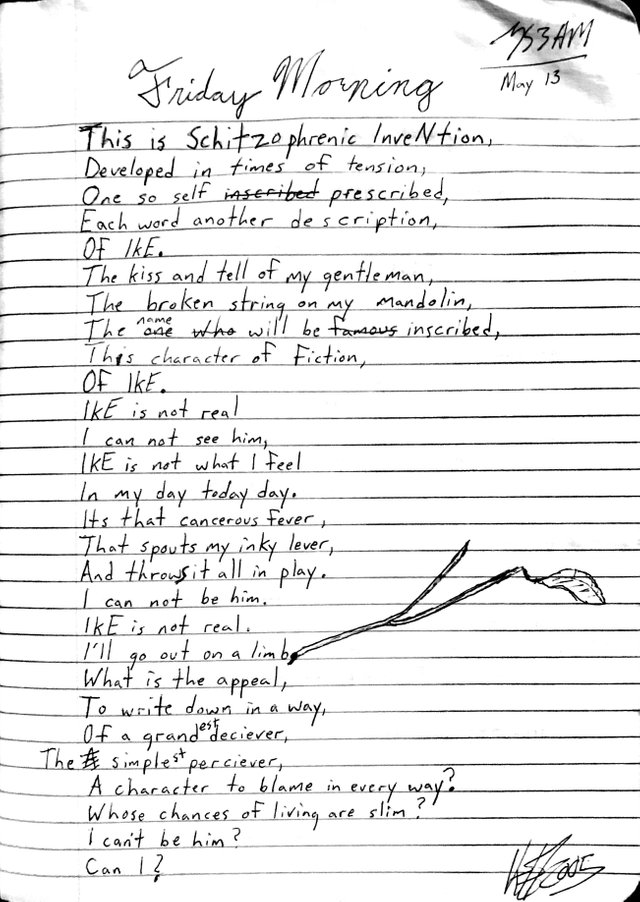 Friday Morning
53AM
May 13
This is Schitzophrenic InveNtion,
Developed in times of tension,
One so self inscribed prescribed,
Each word another description,
OF IkE.
The kiss and tell of my gentleman,
The broken string on my mandolin,
The one name who will be famous inscribed,
This character of Fiction,
OF IkE.
IkE is not real
I can not see him,
IkE is not what I feel
In my day today day.
Its that cancerous fever,
That spouts my inky lever,
And throws it all in play.
I can not be him.
IkE is not real.
I'll go out on a limb
What is the appeal,
To write down in a way,
Of a grandest deciever,
The simplest perciever,
A character to blame in every way?
Whose chances of living are slim?
I can't be him?
Can I?
2005